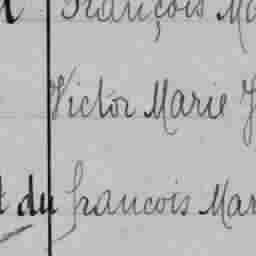 François Ma
Victor Marie J
du francois Mar